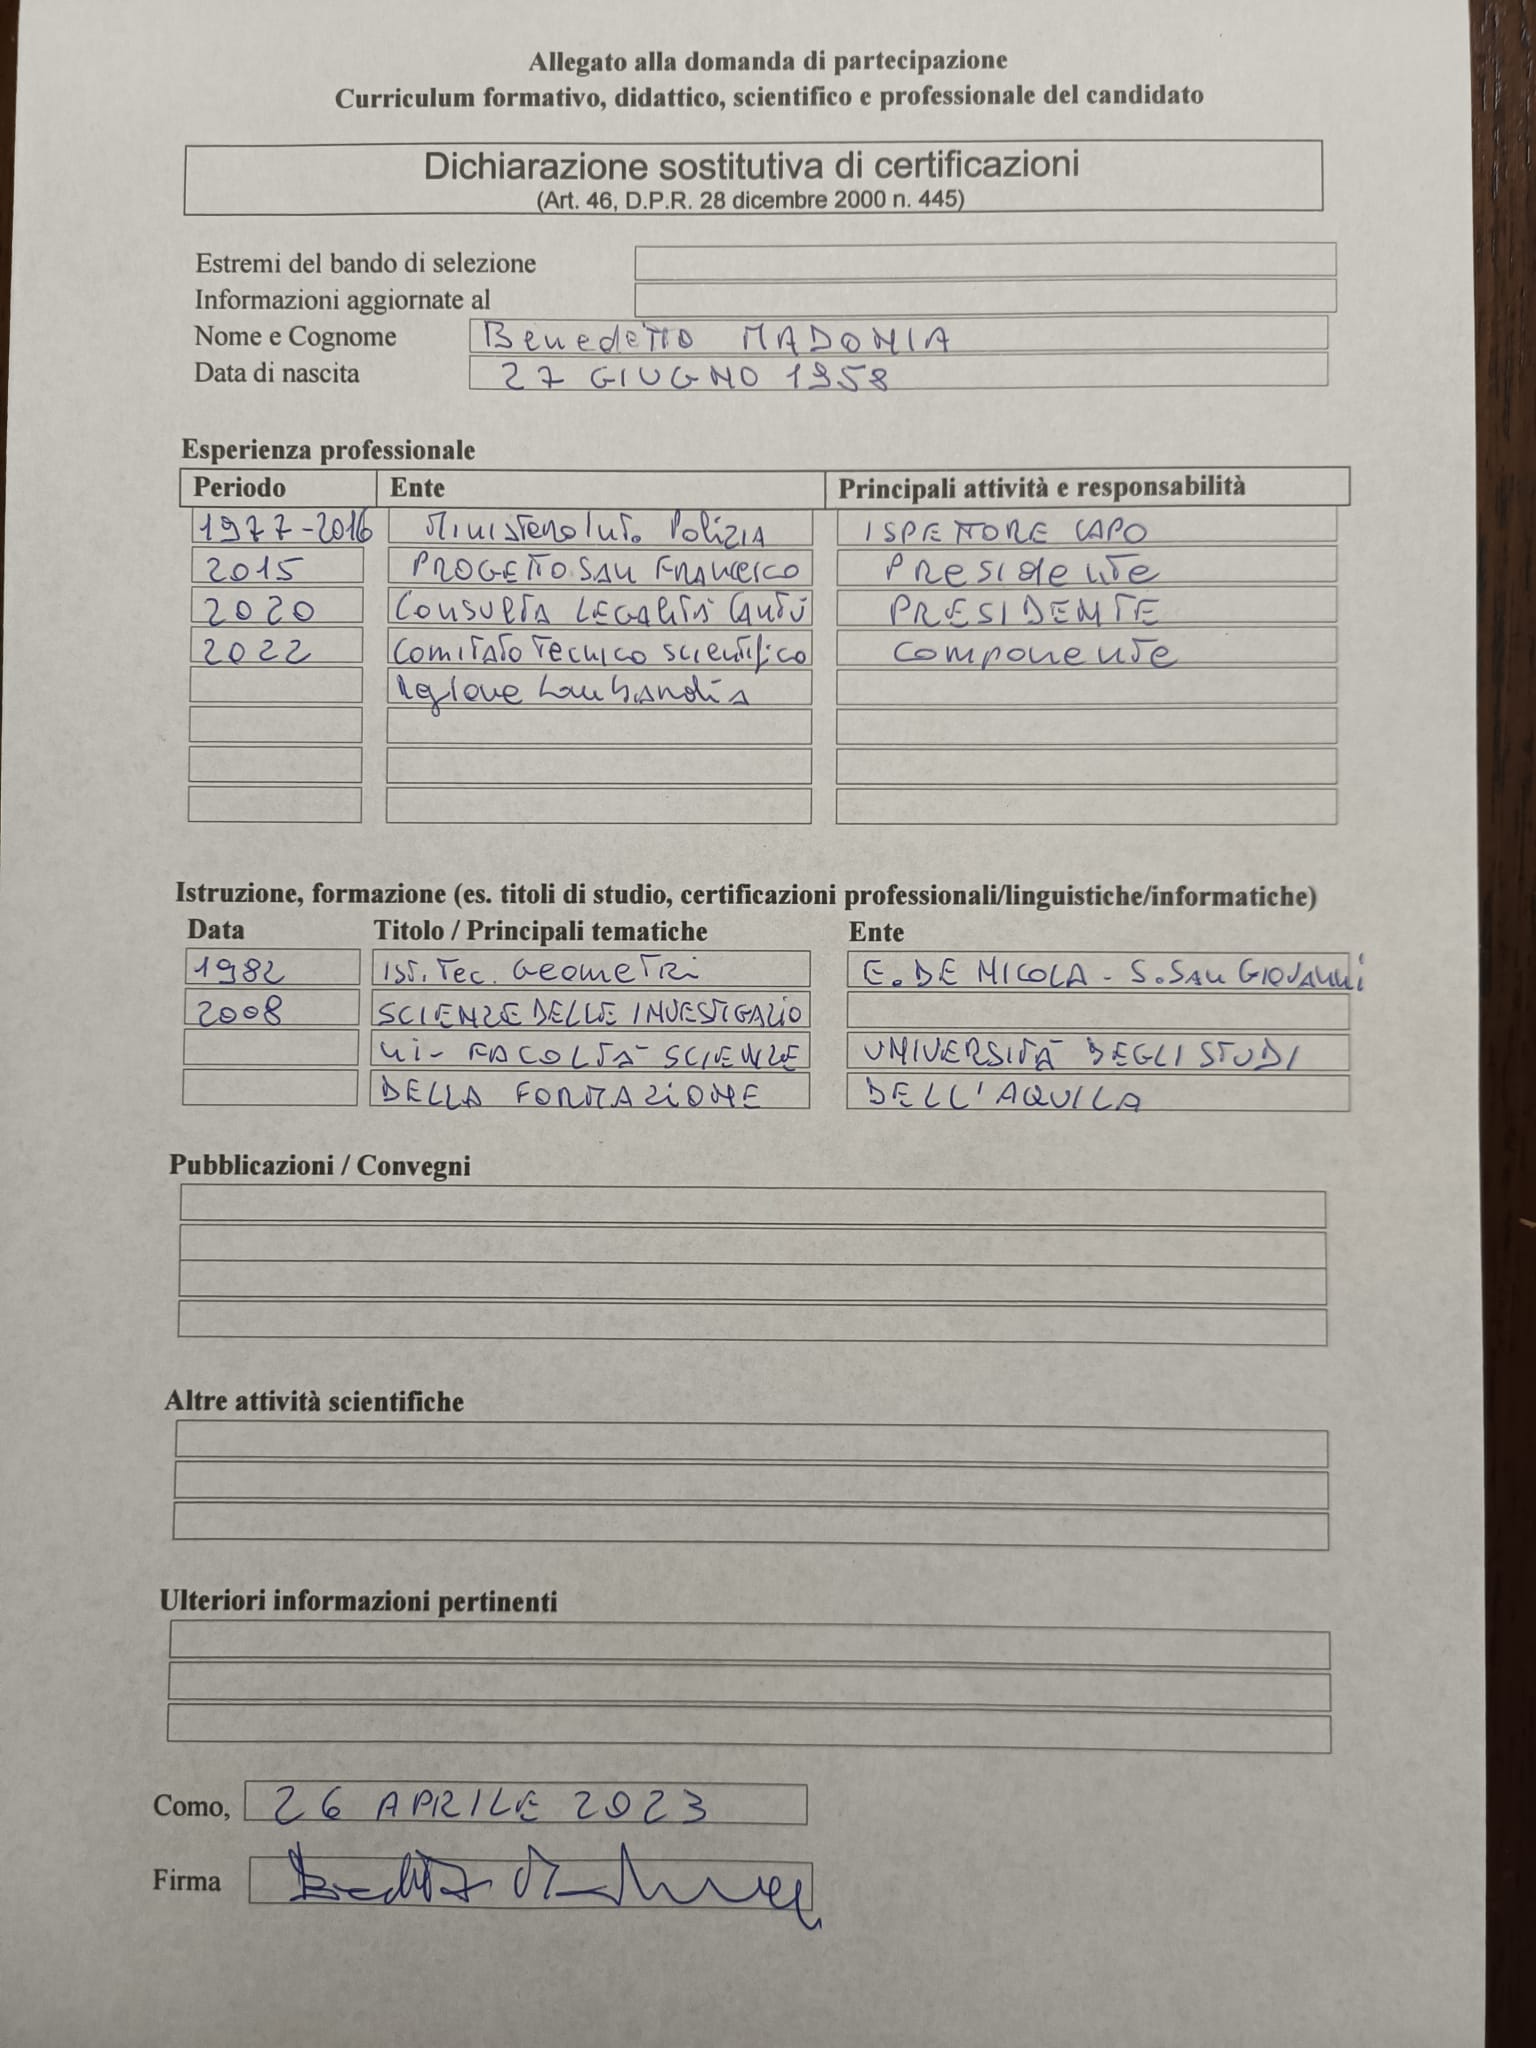 Allegato alla domanda di partecipazione
Curriculum formativo, didattico, scientifico e professionale del candidato
Dichiarazione sostitutiva di certificazioni
(Art. 46, D.P.R. 28 dicembre 2000 n. 445)
Estremi del bando di selezione
Informazioni aggiornate al
Nome e Cognome Benedetto MADONIA
Data di nascita 27 GIUGNO 1958
Esperienza professionale
Periodo Ente Principali attività e responsabilità
1977-2016 Ministero Int. Polizia ISPETTORE CAPO
2015 PROGETTO SAN FRANCESCO Presidente
2020 CONSULTA LEGALITÀ Cantù PRESIDENTE
2022 Comitato Tecnico scientifico componente
Regione Lombardia
Istruzione, formazione (es. titoli di studio, certificazioni professionali/linguistiche/informatiche)
Data Titolo / Principali tematiche Ente
1982 IST. Tec. Geometri E. DE NICOLA - S. SAN GIOVANNI
2008 SCIENZE DELLE INVESTIGAZIO
NI - FACOLTÀ SCIENZE UNIVERSITÀ DEGLI STUDI
DELLA FORMAZIONE DELL'AQUILA
Pubblicazioni / Convegni
Altre attività scientifiche
Ulteriori informazioni pertinenti
Como, 26 APRILE 2023
Firma